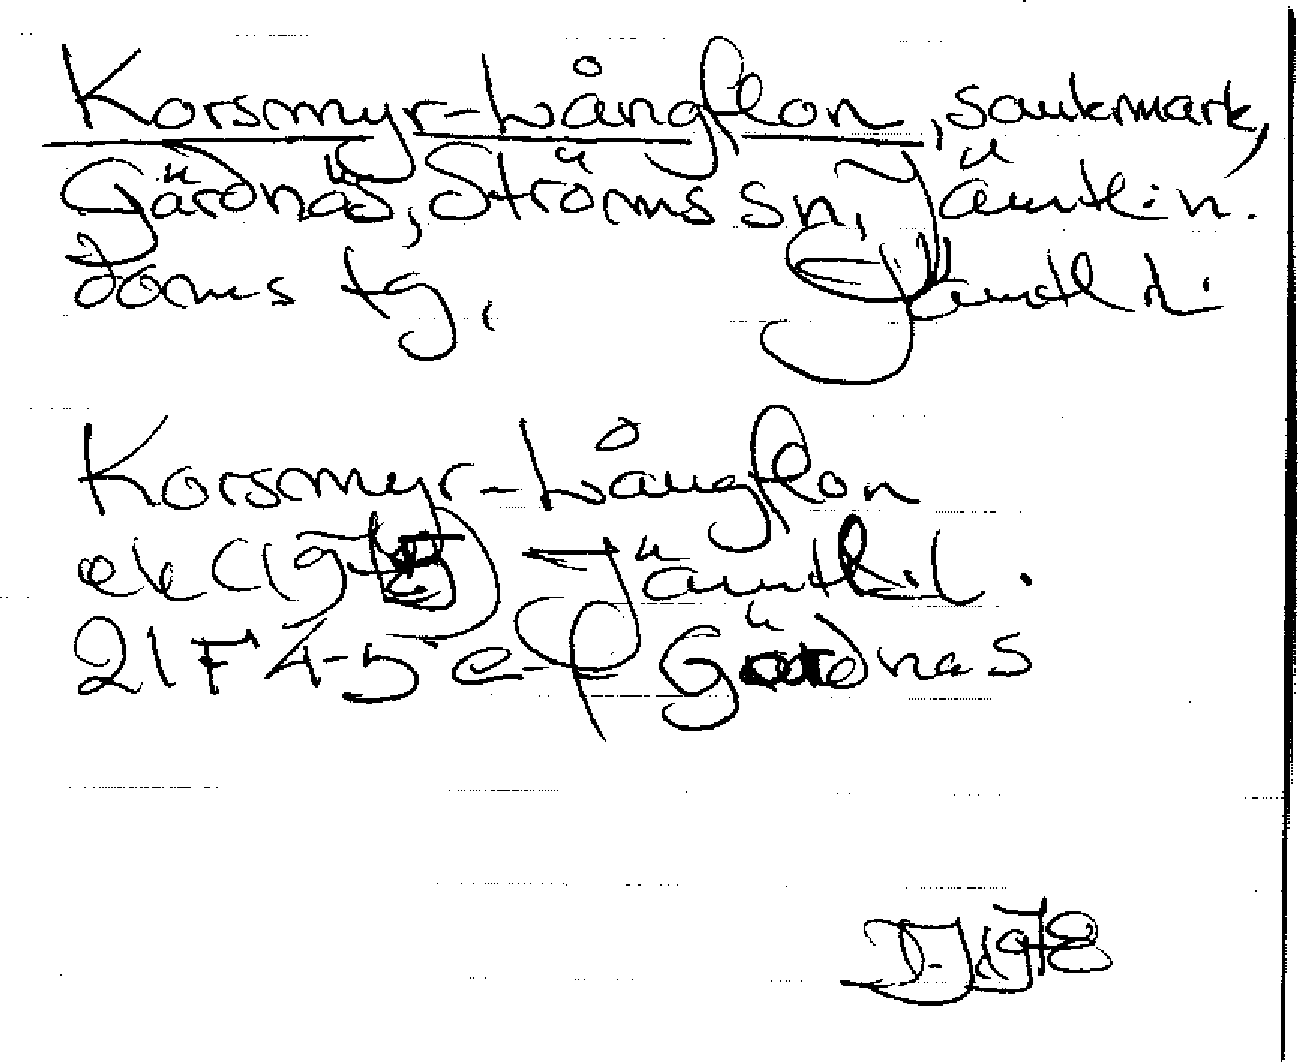 Korsmyr-Långflon, sankmark,
Gärdnäs, Ströms sn, Jämtl:n.
doms tg,
Korsmyr-Långflon
ek (1975) Jämtl:l.
21F 4-5 e-f Gärdnäs
DJ 1978